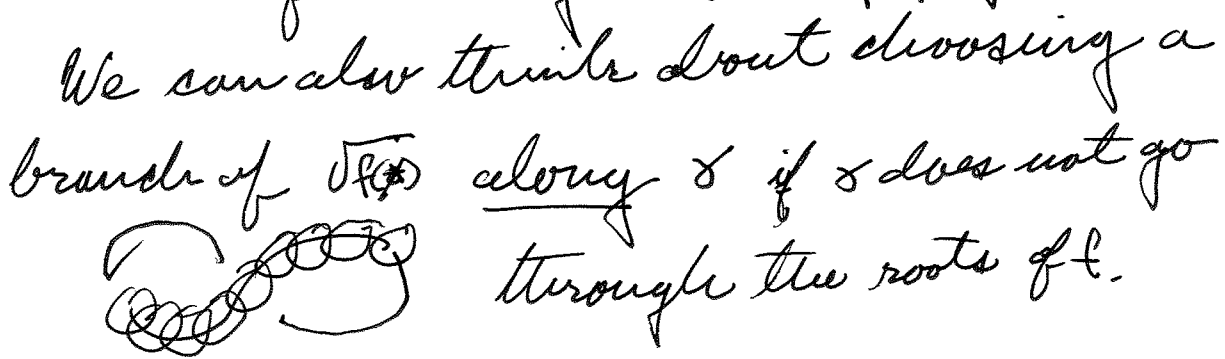 We can also think about choosing a
branch of √f(z) along γ if γ does not go
through the roots of f.